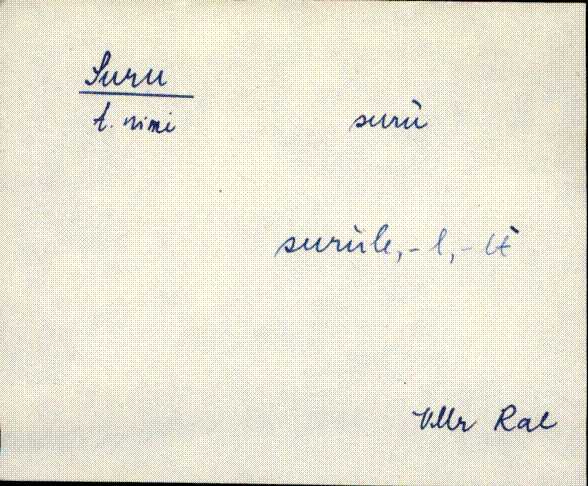 Suru
t. nimi
surù
surùle, -l, -lt
VMr Ral